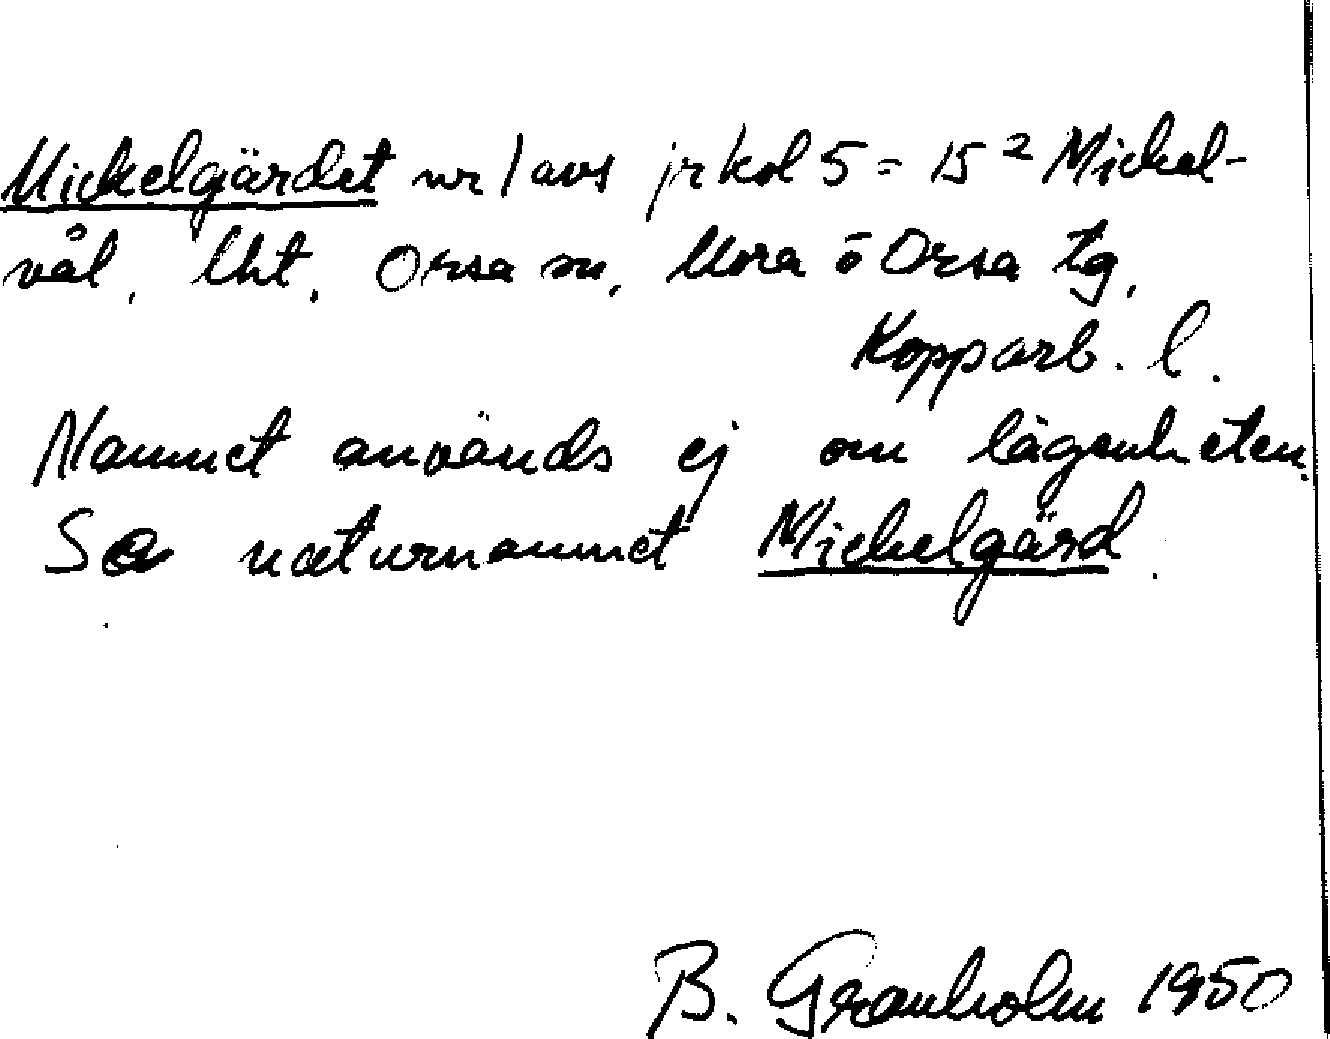 Mickelgärdet nr 1 avs jr kol 5 = 15² Mickel-
vål, lht. Orsa sn, Mora o Orsa tg,
Kopparb. l.
Namnet används ej om lägenheten.
Se naturnamnet Mickelgärd.
B. Granholm 1950